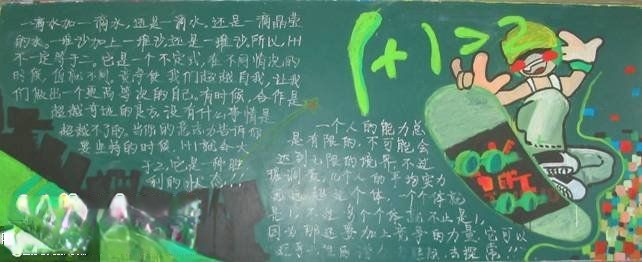 一滴水加一滴水，还是一滴水，还是一滴晶莹
的水。一堆沙加上一堆沙，还是一堆沙。所以，1+1
不一定等于二，它是一个不定式，在不同情况的
时候，值就不同，竞争使我们超越自我，让我
们做出一个更高层次的自己，有时候，合作是
超越奇迹的良方，没有什么事情是
超越不了的，当你的意志力告诉你
要坚持的时候，1+1就会大
于2，它是一种胜
利的状态!!!
1+1>2
一个人的能力总
是有限的，不可能会
达到无限的境界，不过
几个人的平均实力
个体，一个个体
是1，不过多个个体 不止是1，
因为那还要加上竞争的力量，它可以
去探索!!